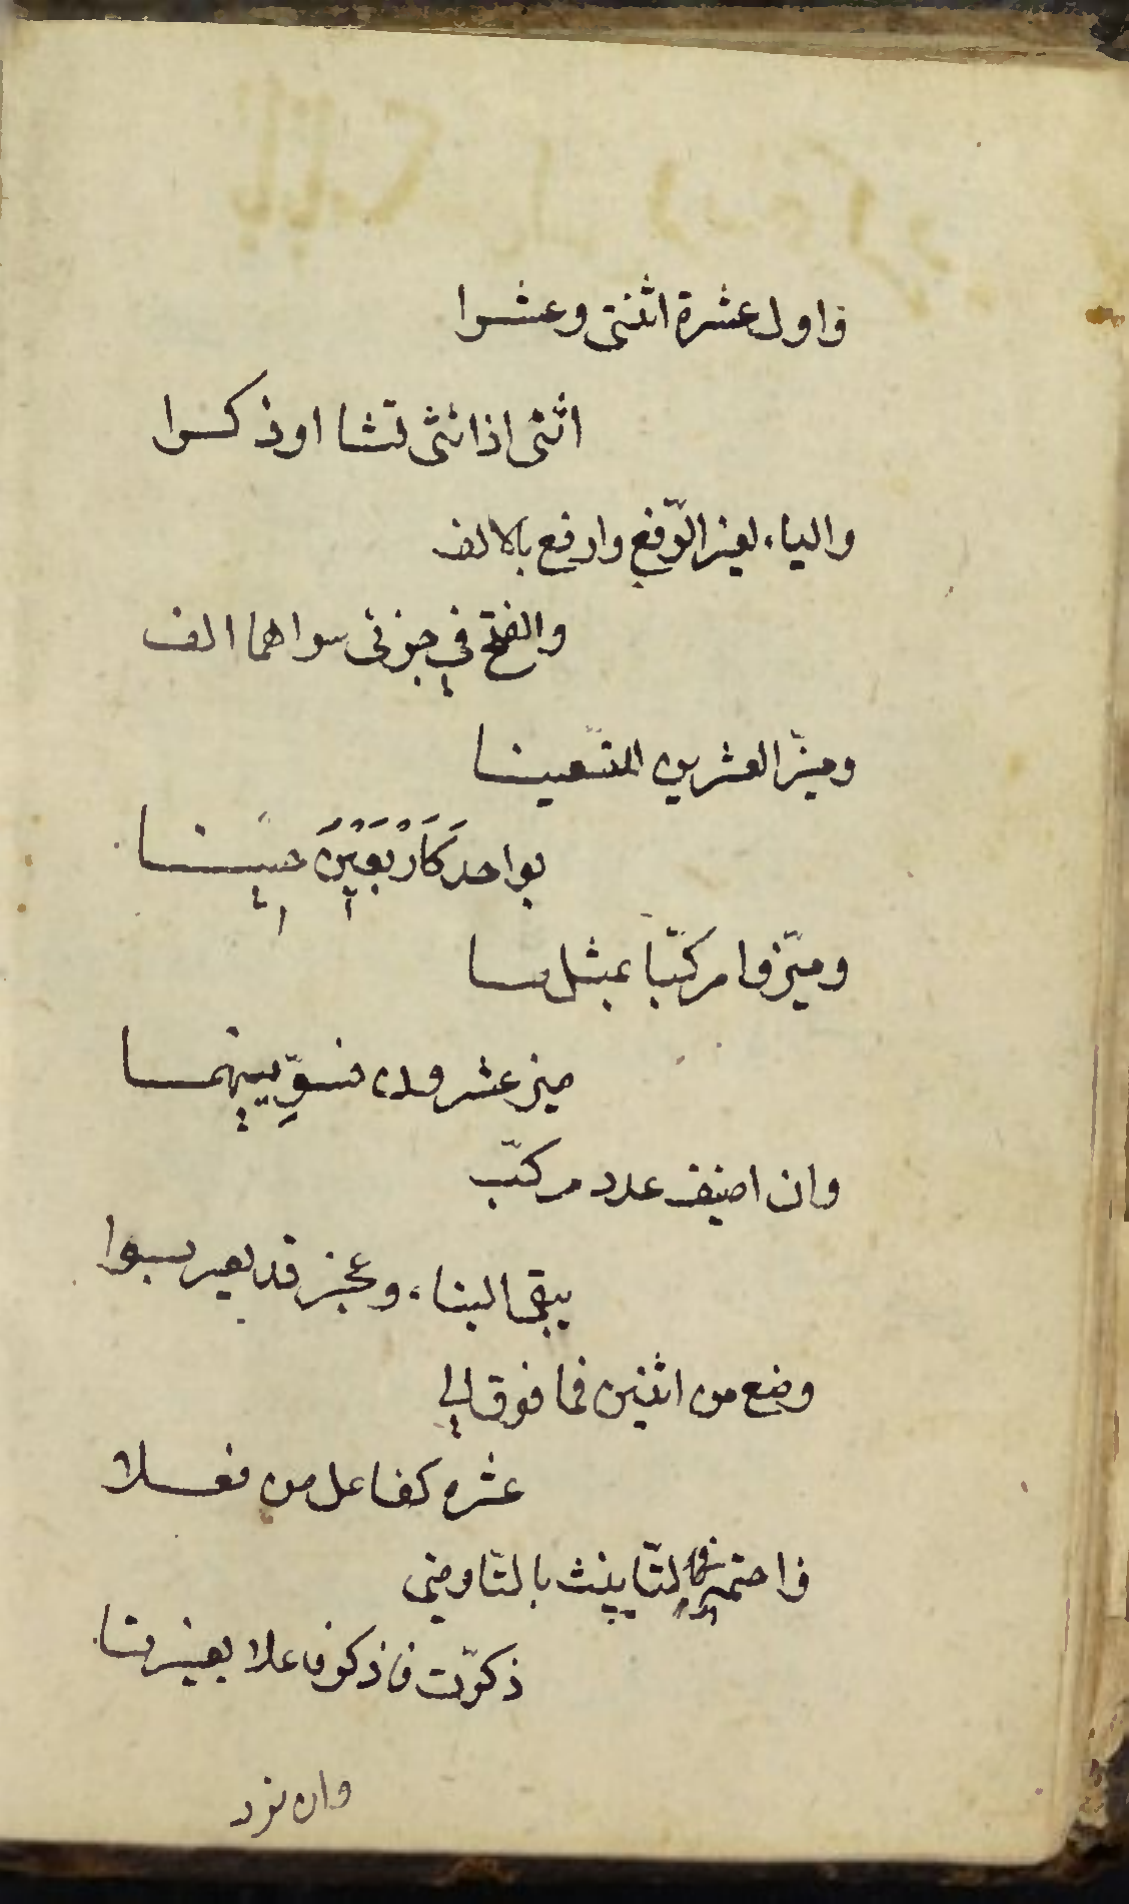 واول عشرة اثنتي وعشرا
اثني اذا انثى تشا او ذكرا
والياء لغير الرّفع وارفع بالالف
والفتح في جزئي سواهما الف
وميّز العشرين للتّسعينا
بواحد كَاَرْبَعْيِنَ حينا
وميّزوا مركّبا بمثل ما
ميز عشرون فسوِّينهما
وان اضيف عدد مركّب
يبقى البناء وعجز قد يعرب
وضع من اثنين فما فوق الي
عشره كفاعل من فعلا
واختمه في التّانيث بالتّا ومتي
ذكّرت فاذكر فاعلا بغير تا
وان ترد